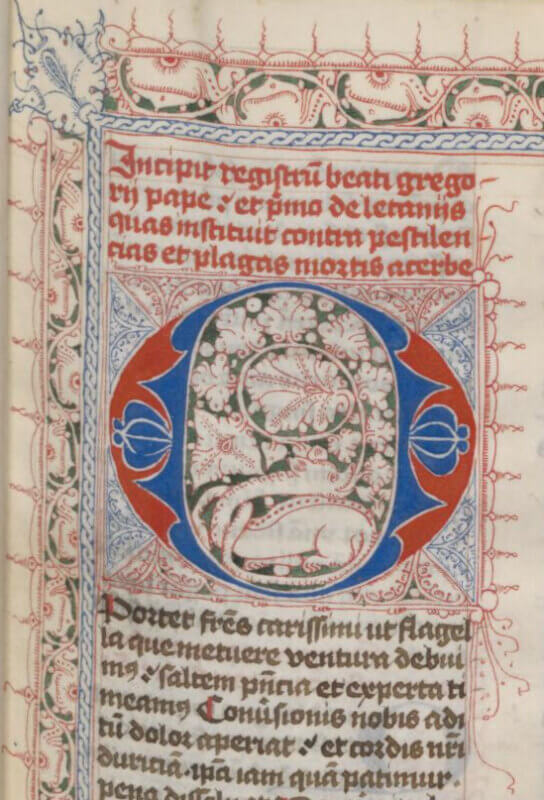 Incipit registrū beati grego
rij pape ⁊ et pͥmo de letanijs
quas instituit contra pestilen
cias et plagas mortis acerbe
O
Portet fr̄es carissimi ut flagel
la que metuere ventura debui
mꝰ ⁊ saltem pn̄cia et experta ti
meamꝰ Conūsionis nobis adi
tū dolor aperiat ⁊ et cordis nr̄i
duriciā. ip̄a iam quā patimur.
pena